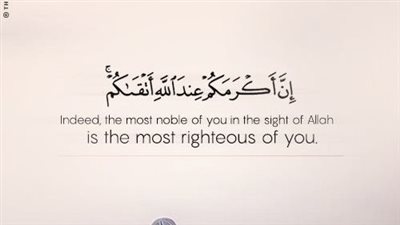 إِنَّ أَكْرَمَكُمْ عِندَ ٱللَّهِ أَتْقَىٰكُمْ ۚ
Indeed, the most noble of you in the sight of Allah
is the most righteous of you.
© TH